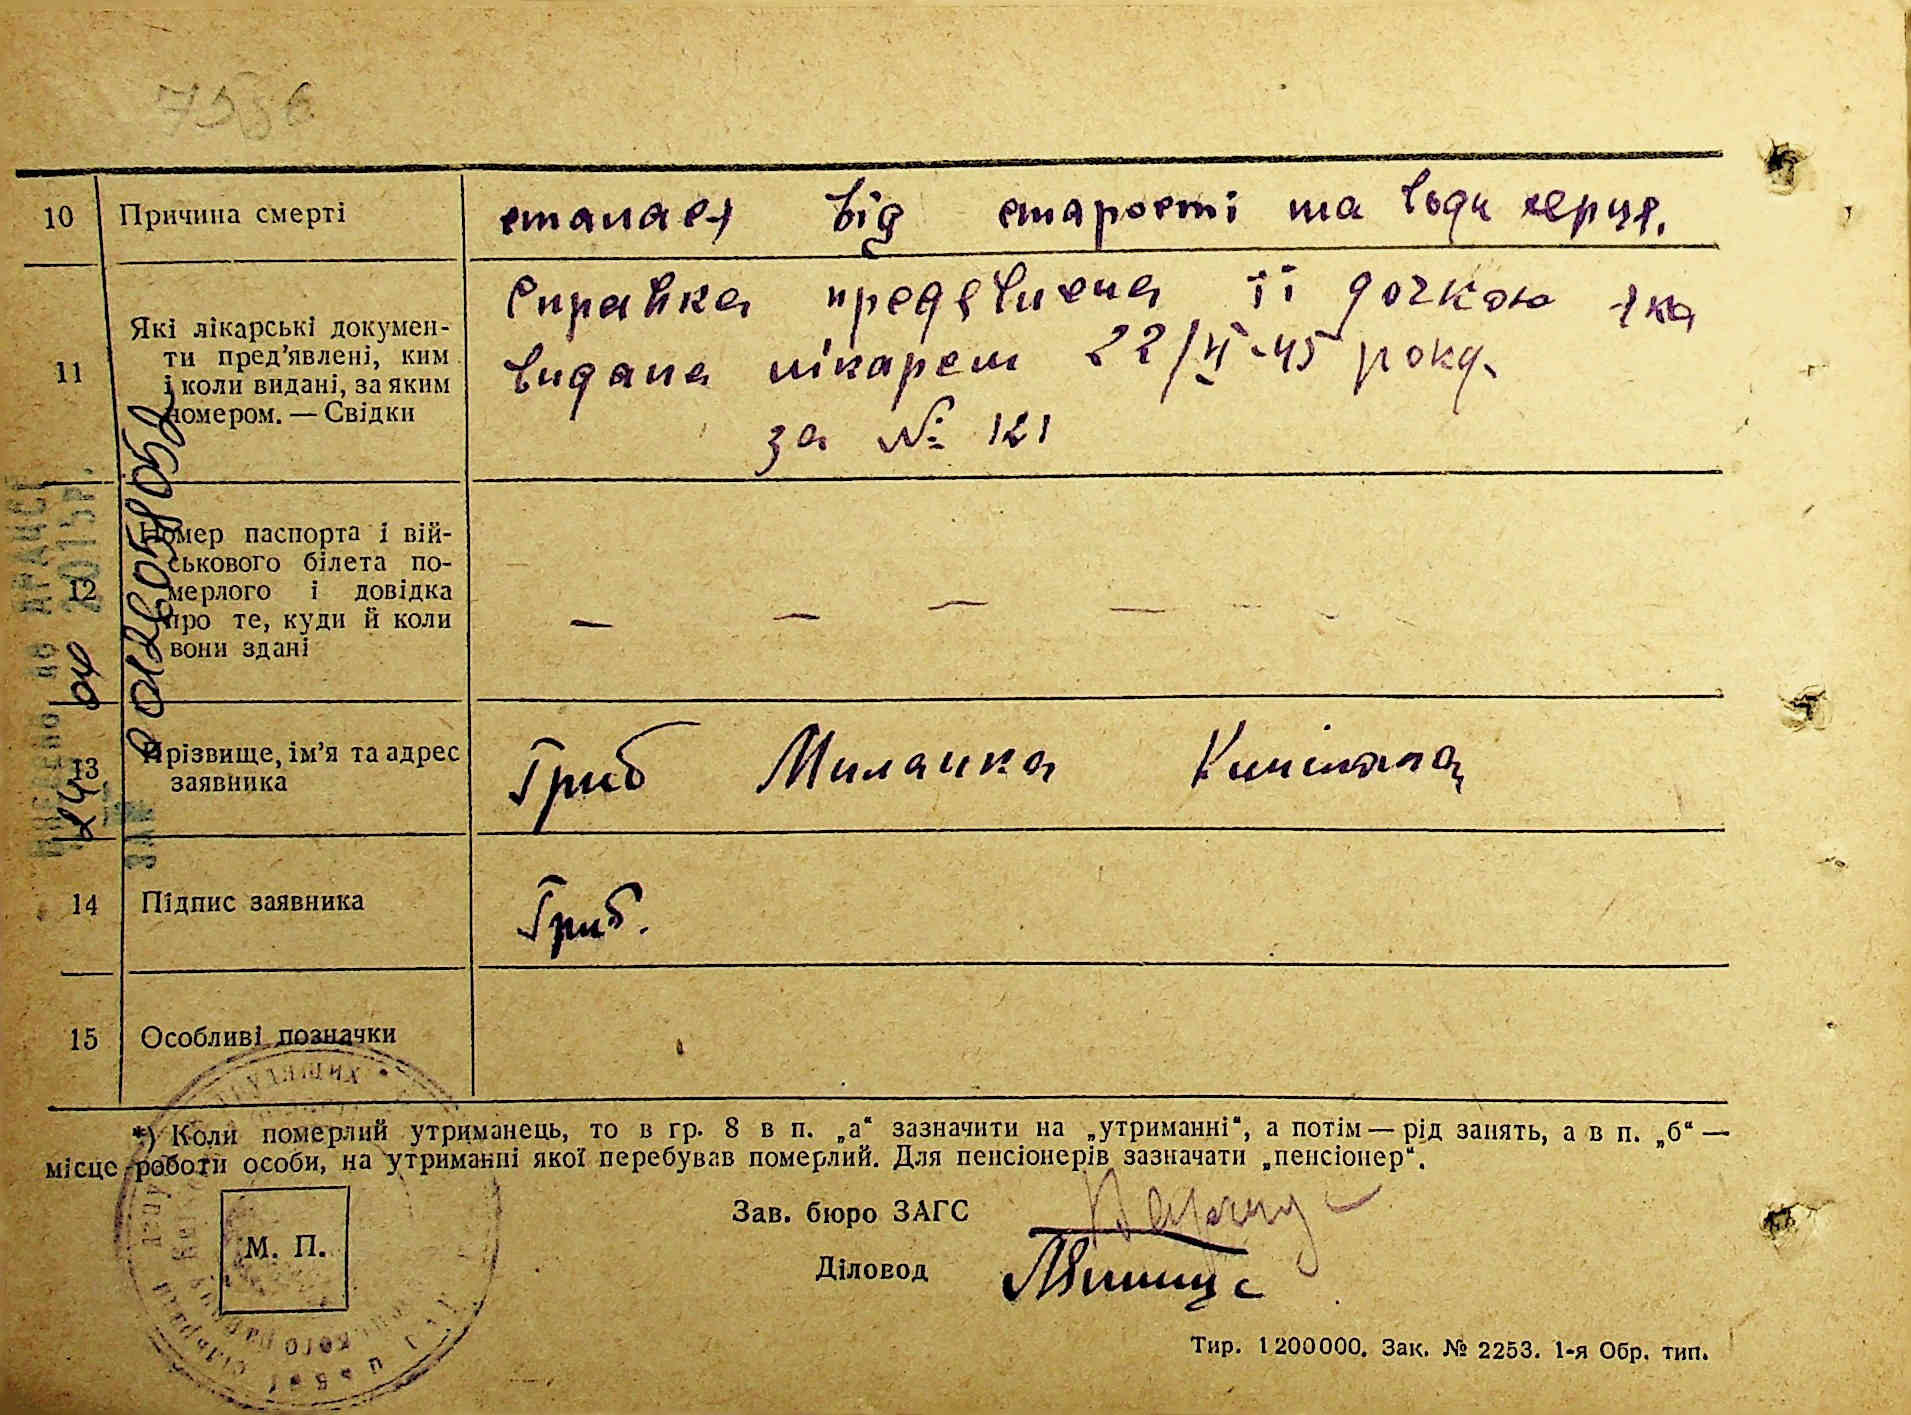 10 Причина смерті
від старості та вади серця.
11 Які лікарські докумен-
ти пред’явлені, ким
і коли видані, за яким
номером. — Свідки
Справка предявлена її дочкою яка
видана лікарем 22/VI-45 року.
за № 121
12 Номер паспорта і вій-
ськового білета по-
мерлого і довідка
про те, куди й коли
вони здані
— — — —
13 Прізвище, ім’я та адрес
заявника
Гриб Миланка
14 Підпис заявника
Гриб.
15 Особливі позначки
*) Коли померлий утриманець, то в гр. 8 в п. „а“ зазначити на „утриманні“, а потім — рід занять, а в п. „б“ —
місце роботи особи, на утриманні якої перебував померлий. Для пенсіонерів зазначати „пенсіонер“.
Зав. бюро ЗАГС
М. П.
Діловод
Тир. 1200000. Зак. № 2253. 1-я Обр. тип.